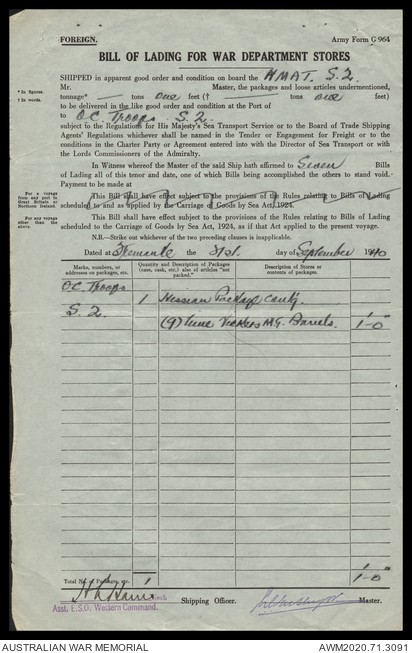 FOREIGN.
Army Form G 964
BILL OF LADING FOR WAR DEPARTMENT STORES
SHIPPED in apparent good order and condition on board the HMAT. S.2.
Mr. Master, the packages and loose articles undermentioned,
* In figures.
† In words.
tonnage* — tons one feet († — tons one feet)
to be delivered in the like good order and condition at the Port of
to O.C. Troops. S.2.
subject to the Regulations for His Majesty's Sea Transport Service or to the Board of Trade Shipping
Agents' Regulations whichever shall be named in the Tender or Engagement for Freight or to the
conditions in the Charter Party or Agreement entered into with the Director of Sea Transport or with
the Lords Commissioners of the Admiralty.
In Witness whereof the Master of the said Ship hath affirmed to Seven Bills
of Lading all of this tenor and date, one of which Bills being accomplished the others to stand void.
Payment to be made at
For a voyage from any port in Great Britain or Northern Ireland.
This Bill shall have effect subject to the provisions of the Rules relating to Bills of Lading
scheduled to and as applied by the Carriage of Goods by Sea Act, 1924.
For any voyage other than the above.
This Bill shall have effect subject to the provisions of the Rules relating to Bills of Lading
scheduled to the Carriage of Goods by Sea Act, 1924, as if that Act applied to the present voyage.
N.B.—Strike out whichever of the two preceding clauses is inapplicable.
Dated at Fremantle the 31st. day of September 1940
Marks, numbers, or addresses on packages, etc.
Quantity and Description of Packages (case, cask, etc.) also of articles "not packed."
Description of Stores or contents of packages.
OC Troops
S. 2.
1 Hessian Package contg.
(9) nine Vickers M.G. Barrels. 1'-0"
Total No. of Packages, etc. 1 1'-0"
Shipping Officer.
Master.
Asst. E.S.O. Western Command.
AUSTRALIAN WAR MEMORIAL
AWM2020.71.3091